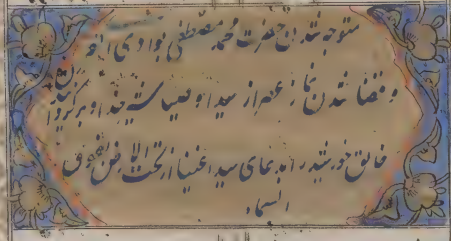 متوجه شدن حضرت محمد مصطفی بوادی
و قضا شدن نماز عصر از سید اوصیا
خالق خورشید را بدعای سید اغنیا از تحت الارض بفوق
السماء